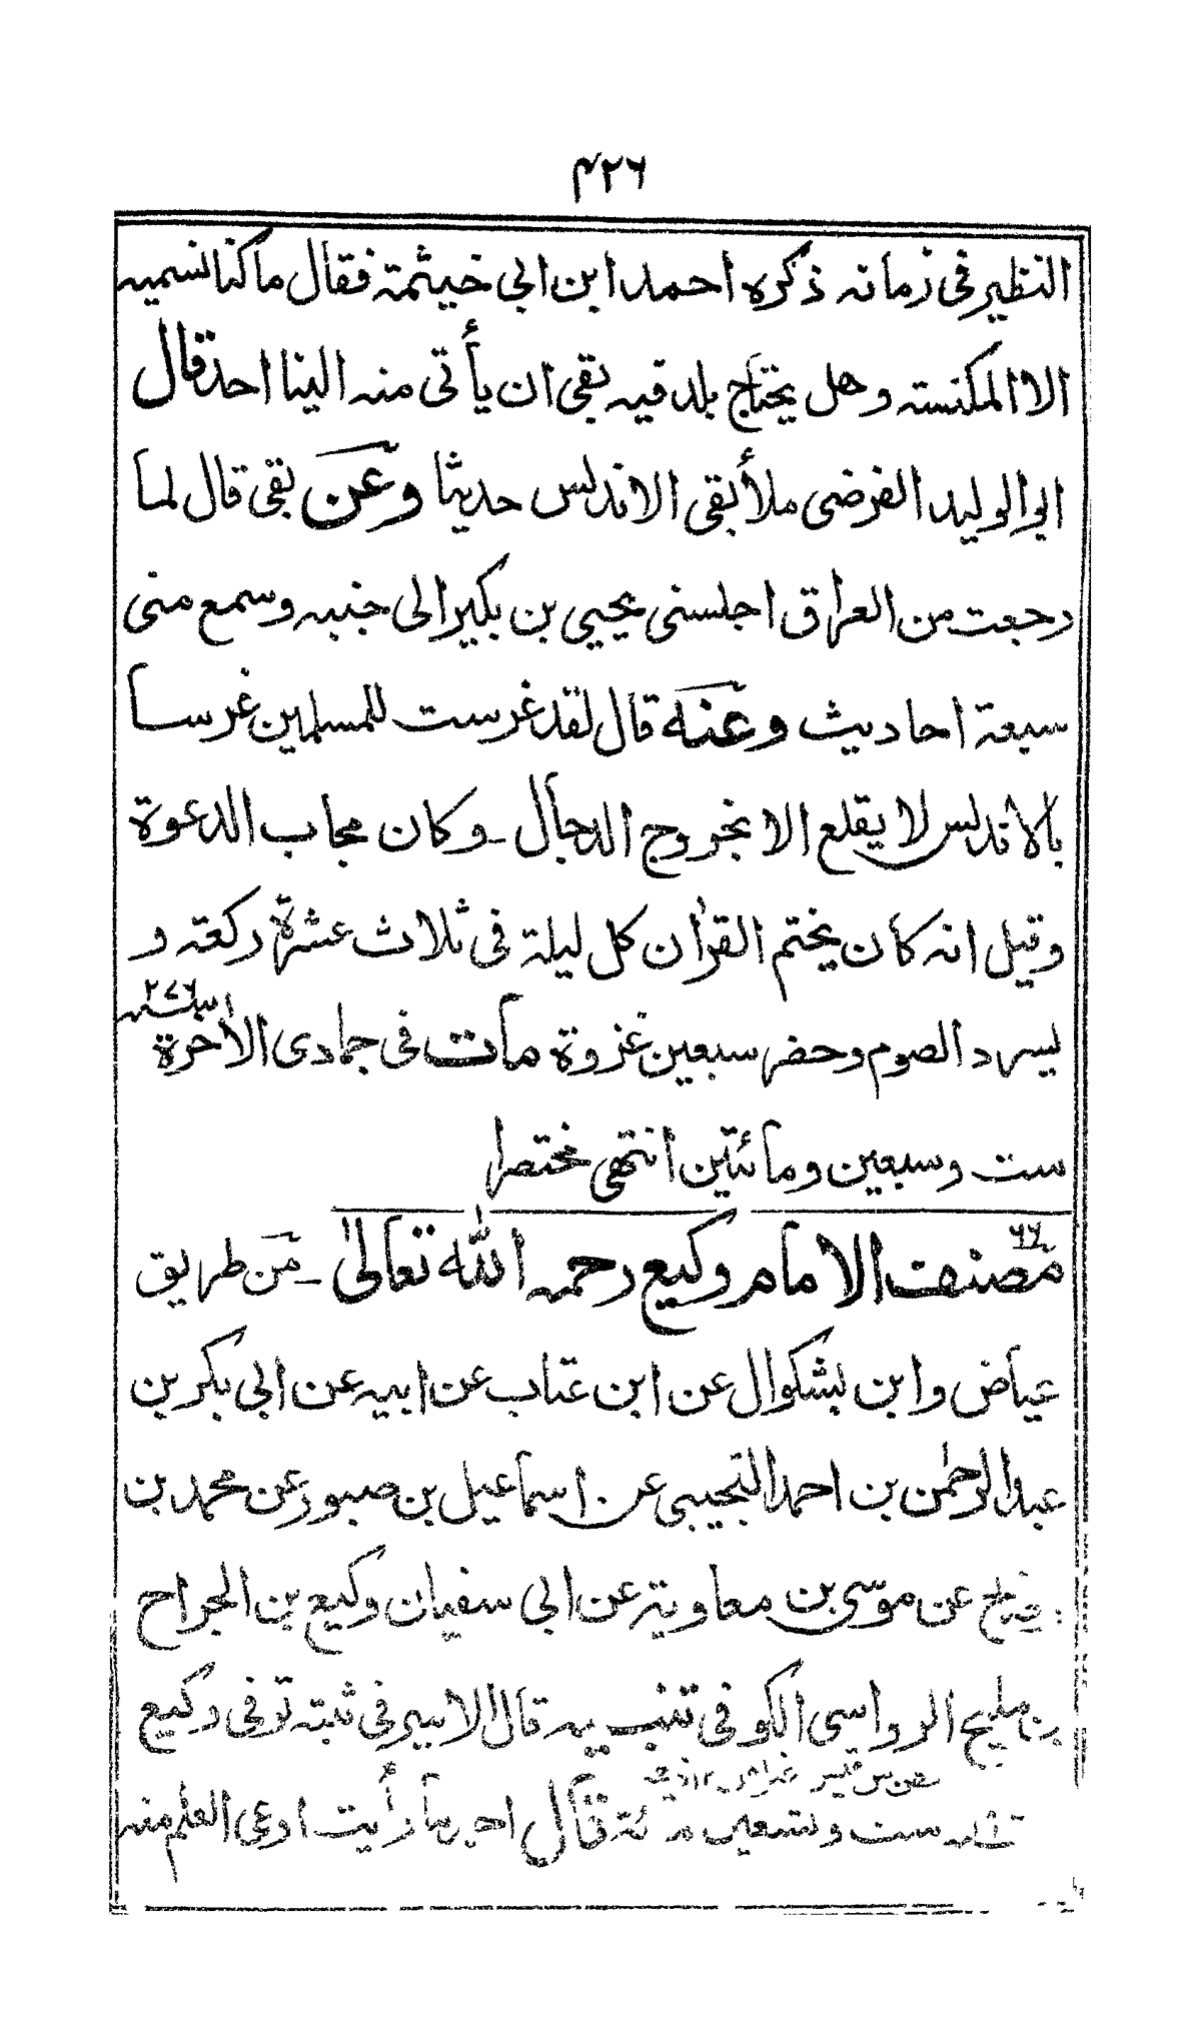 ٤٢٦
النظير فى زمانه ذكره احمد ابن ابى خيثمة فقال ما كنا نسميه
الا المكنسته وهل يحتاج بلد فيه بقى ان يأتى منه الينا احد قال
ابو الوليد الفرضى ملأ بقى الاندلس حديثا وعن بقى قال لما
رجعت من العراق اجلسنى يحيى بن بكير الى جنبه وسمع منى
سبعة احاديث وعنه قال لقد غرست للمسلمين غرسا
بالاندلس لا يقلع الا بخروج الدجال ـ وكان مجاب الدعوة
وقيل انه كان يختم القرأن كل ليلة فى ثلاث عشرة ركعة و
يسرد الصوم وحضر سبعين غزوة مات فى جمادى الأخرة ٢٧٦
ست وسبعين ومائتين انتهى مختصرا
مصنف الامام وكيع رحمه الله تعالى ـ من طريق
عياض وابن بشكوال عن ابن عتاب عن ابيه عن ابى بكر بن
عبد الرحمن بن احمد التجيبى عن اسماعيل بن صبور عن محمد بن
عن موسى بن معاوية عن ابى سفيان وكيع بن الجراح
بن مليح الرواسى الكوفى تنبيه قال الامير فى ثبته توفى وكيع
ست وتسعين قال احمد ما رأيت اوعى العلم منه